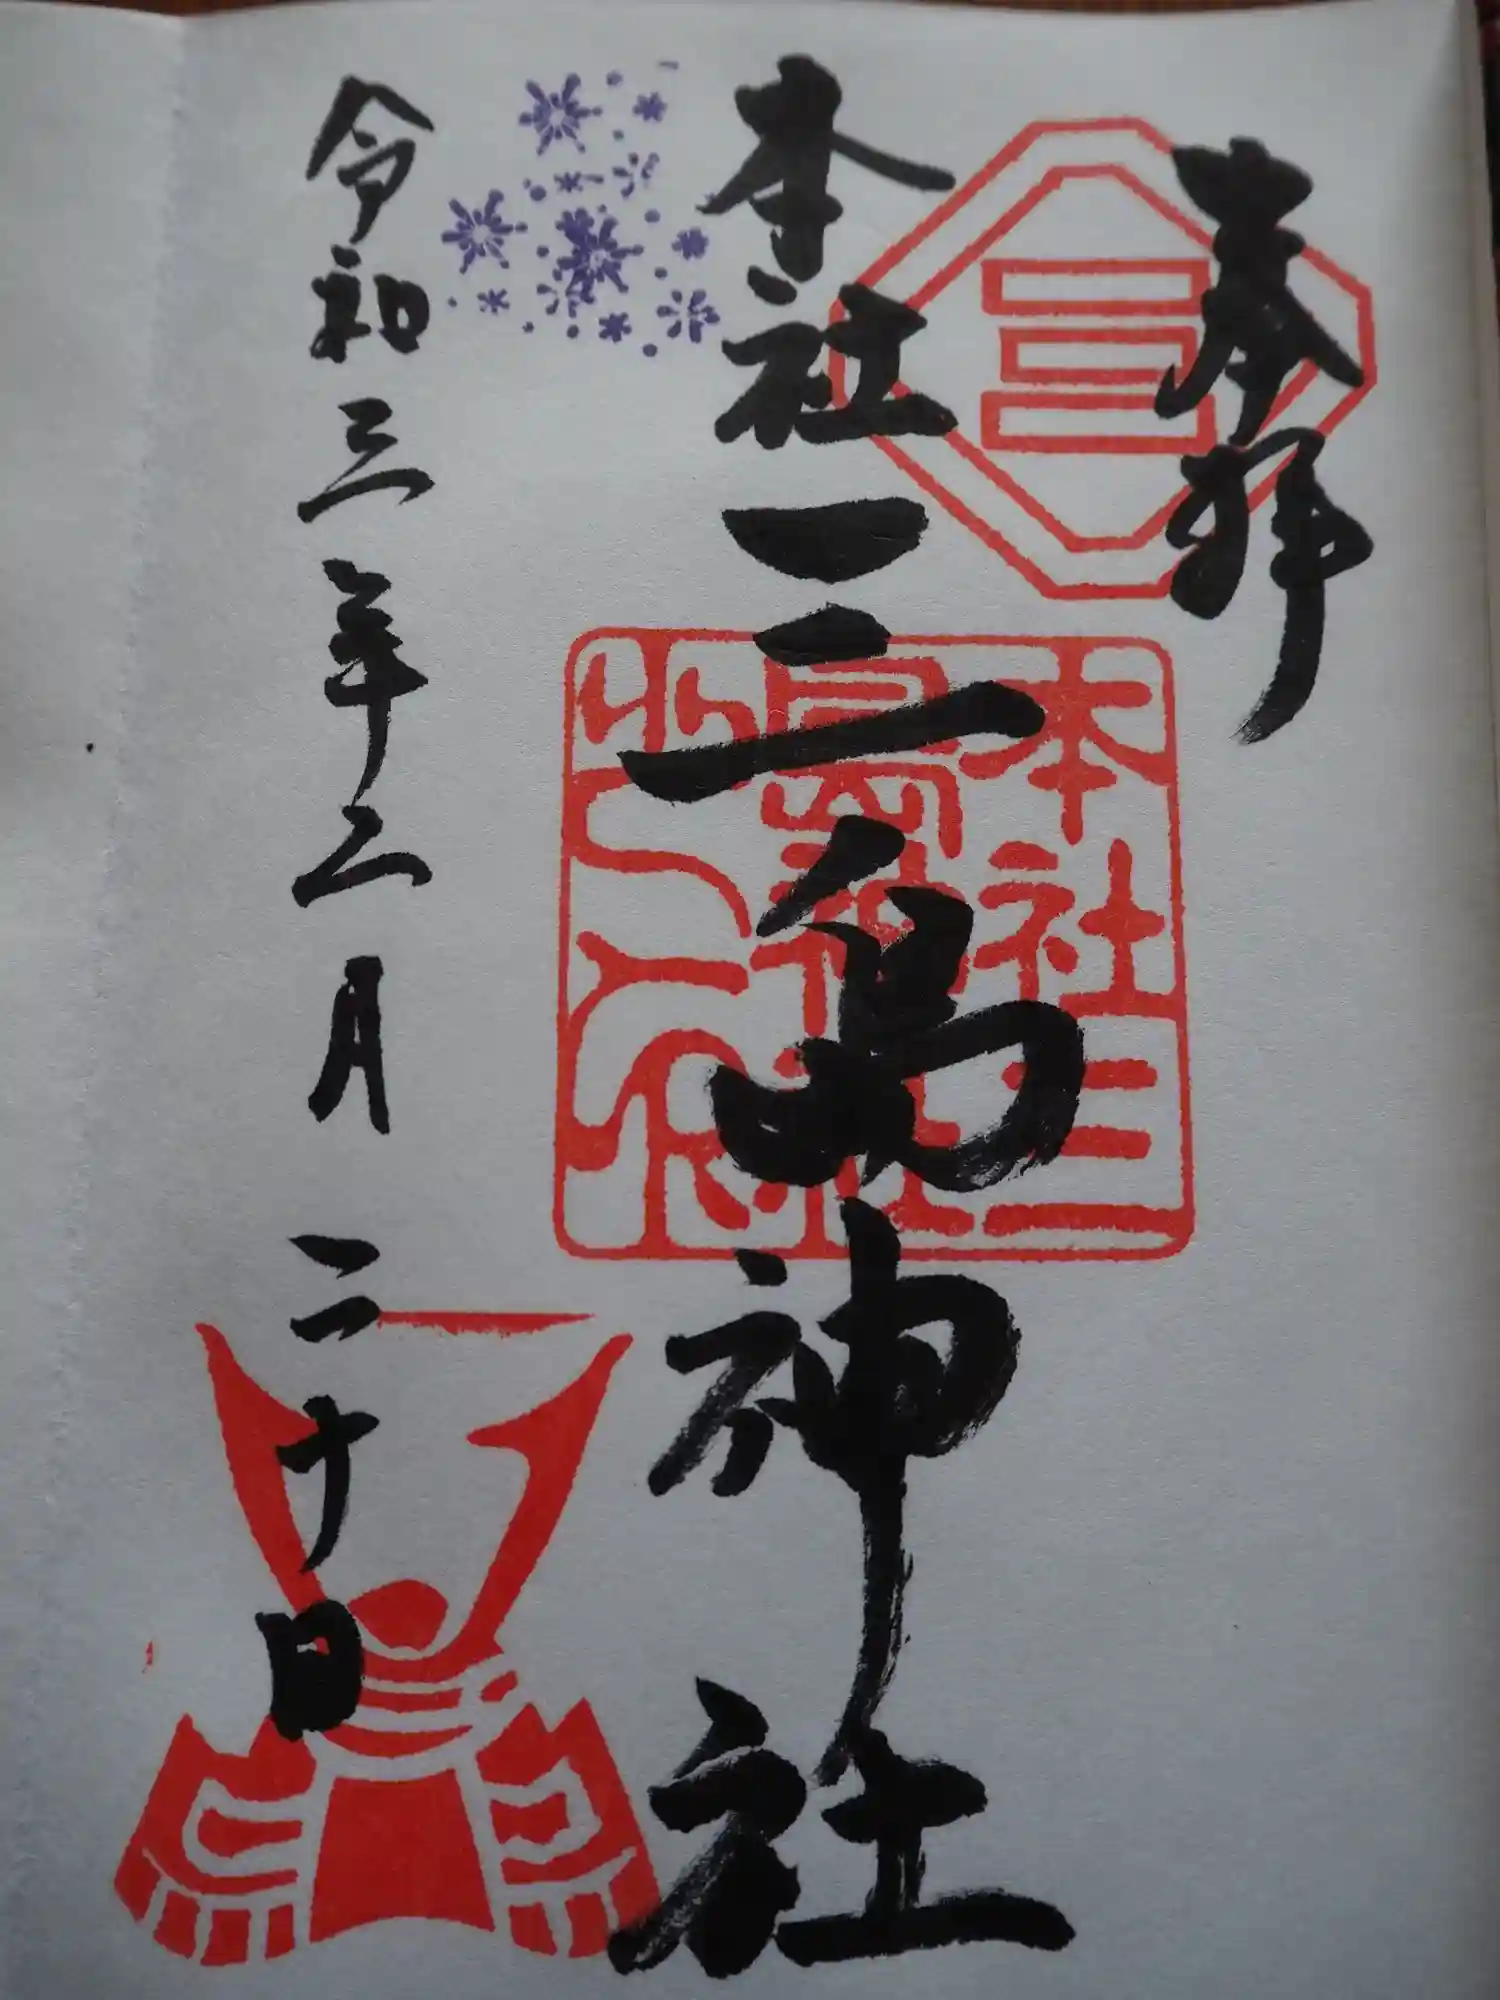 奉拝
本社三島神社
令和三年二月二十日
本社三
島神社
之印